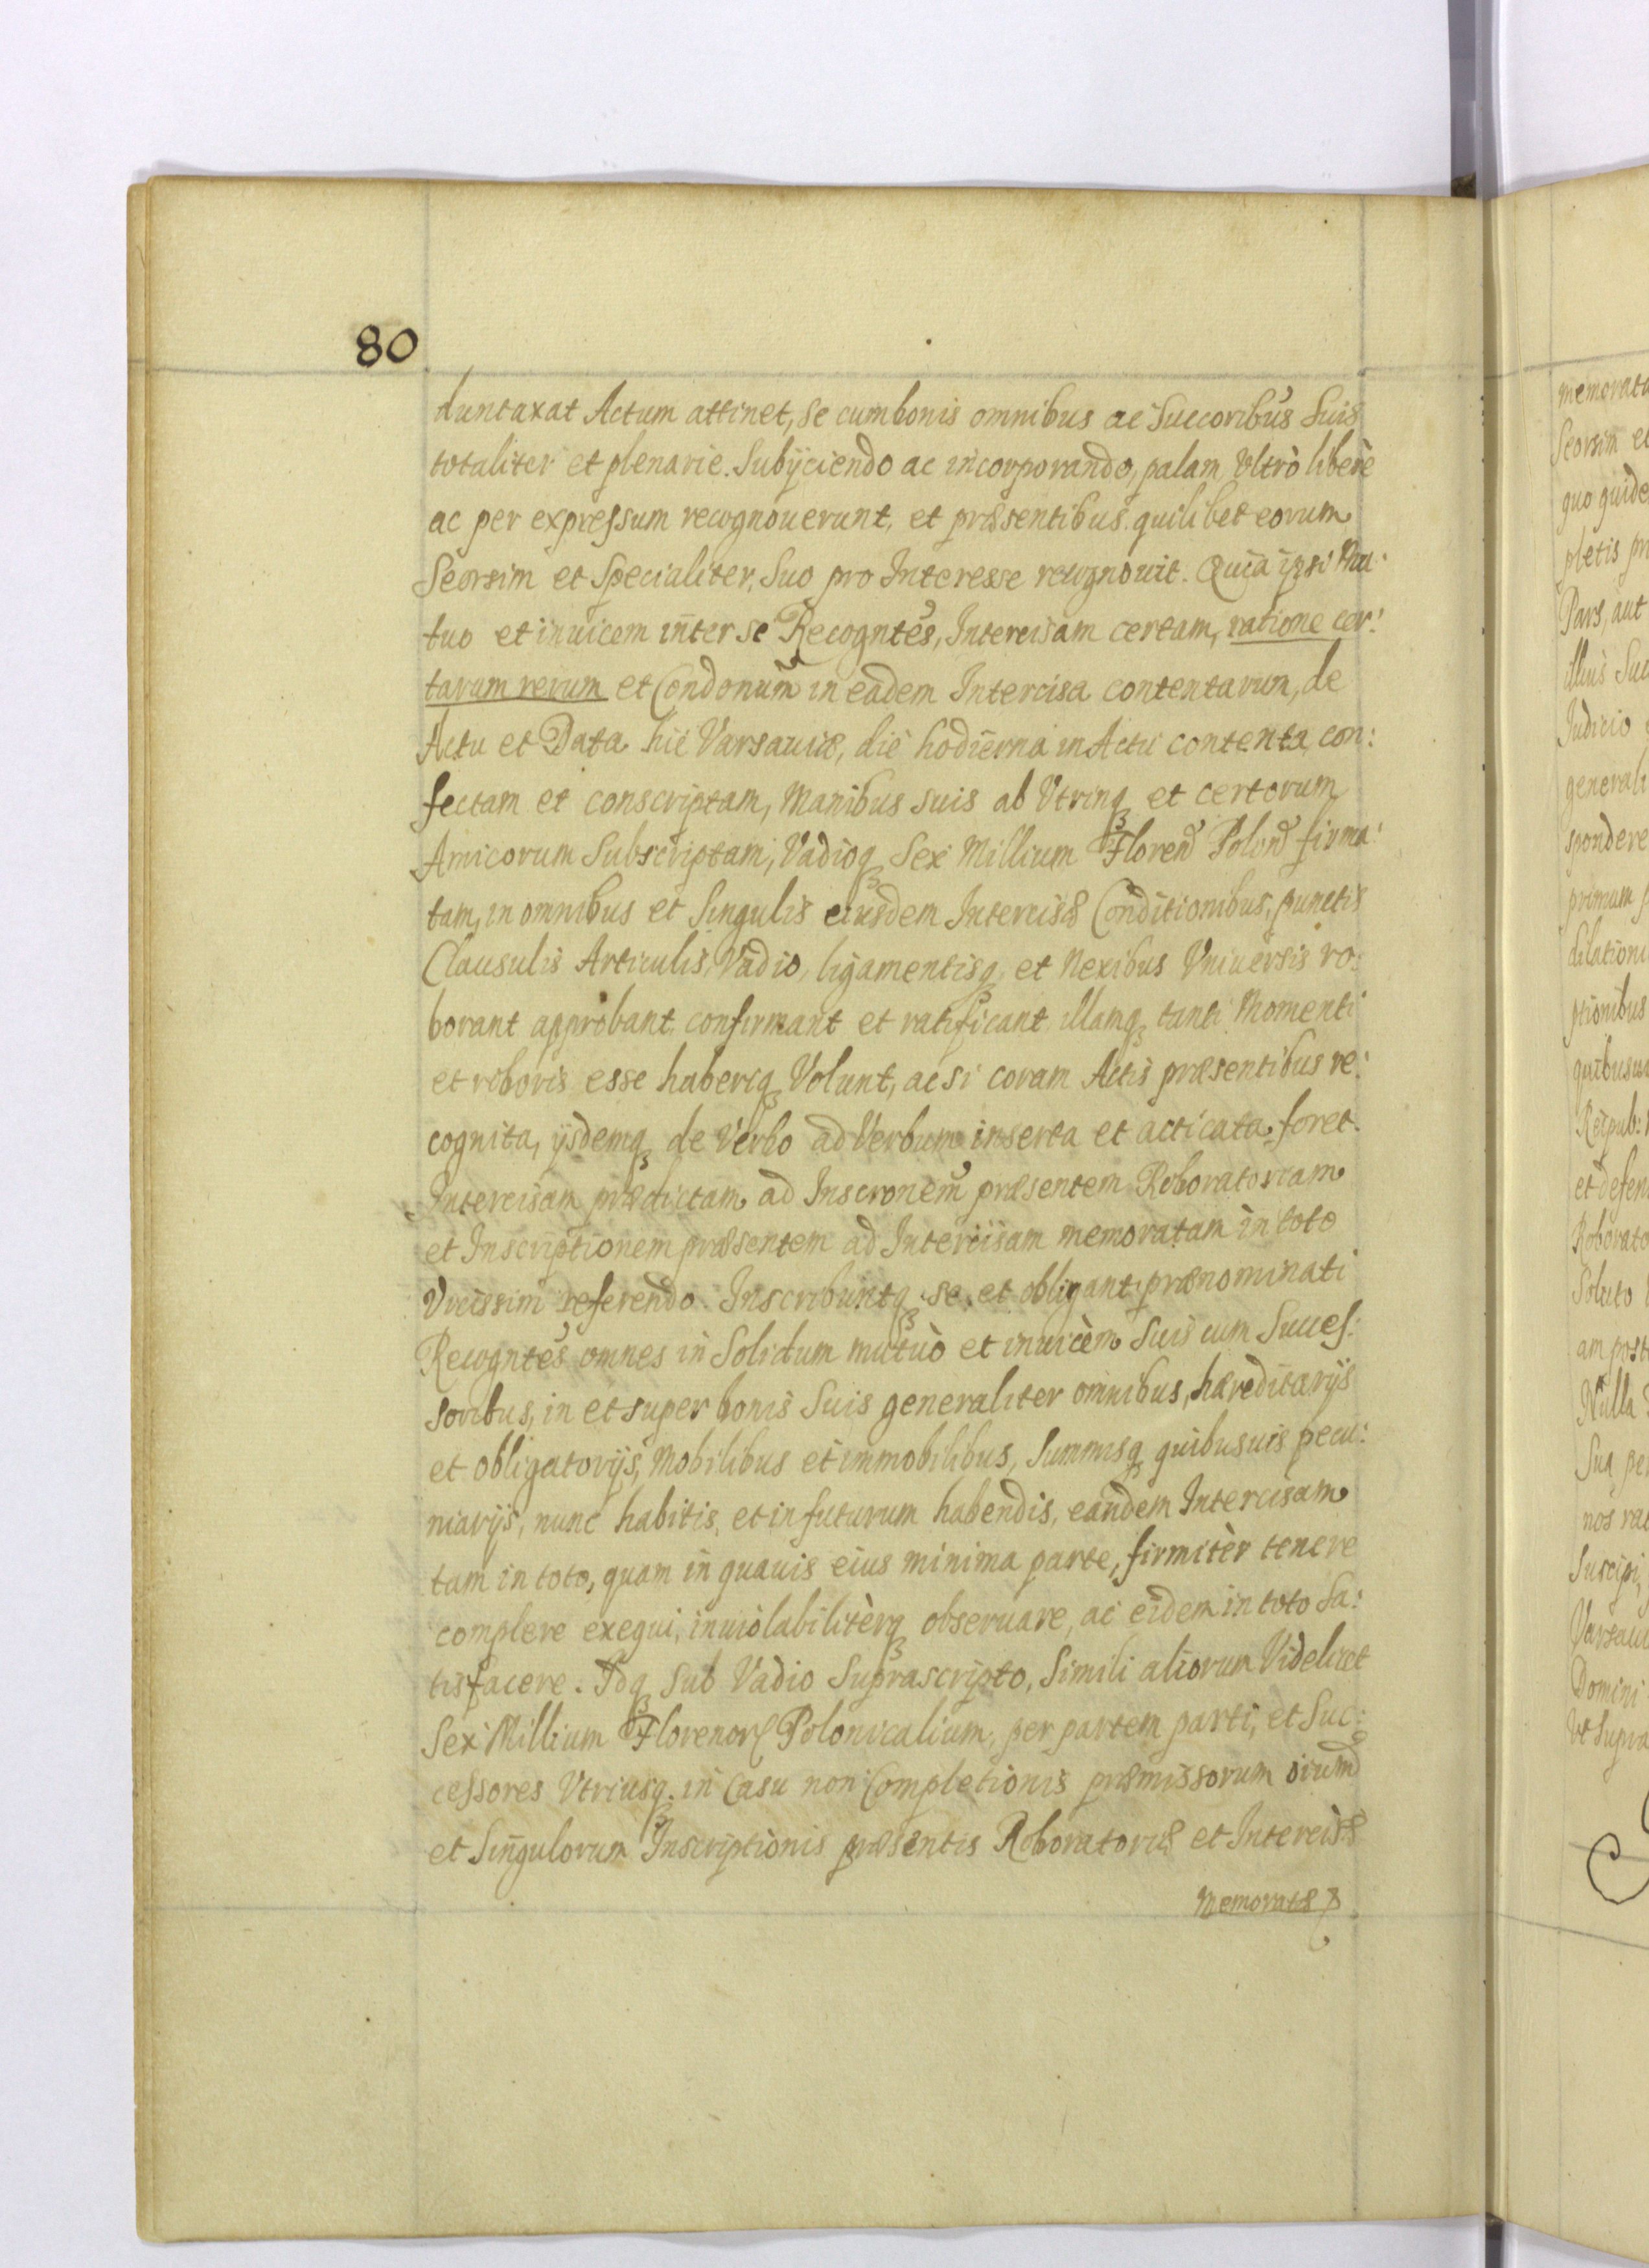 80
duntaxat Actum attinet, se cum bonis omnibus ac Succoribus Suis
totaliter et plenarie. Subÿciendo ac incorporando, palam Vltrò liberè
ac per expressum recognouerunt, et præsentibus quilibet eorum
Seorsim et Specialiter, Suo pro Interesse recognouit. Quia ipsi Mu:
tuo et inuicem inter se Recogntes, Intercisam certam, ratione cer:
tarum rerum et Condonum in eadem Intercisa contentarum, de
Actu et Data hic Varsauiæ, die hodierna in Actu contenta con:
fectam et conscriptam, Manibus suis ab Vtrinq et certorum
Amicorum Subscriptam, Vadioq Sex Millium Floren Polon firma:
tam, in omnibus et Singulis eiusdem Intercisæ Conditionibus, punctis
Clausulis Articulis, Vadio, ligamentisq et Nexibus Vniuersis ro:
borant approbant confirmant et ratificant illamq tanti Momenti
et roboris esse haberiq Volunt, ac si coram Actis præsentibus re:
cognita, ÿsdemq de Verbo ad Verbum inserta et acticata foret.
Intercisam prædictam ad Inscronem præsentem Roboratoriam
et Inscriptionem præsentem ad Intercisam memoratam in toto
Vicissim referendo. Inscribuntq se et obligant prænominati
Recogntes omnes in Solidum mutuò et inuicèm Suis cum Succes:
soribus, in et super bonis Suis generaliter omnibus, hæreditarÿs
et obligatorÿs, Mobilibus et immobilibus, Summisq quibusuis pecu:
niarÿs, nunc habitis, et in futurum habendis, eandem Intercisam
tam in toto, quam in quauis eius minima parte, firmitèr tenere
complere exequi, inuiolabilitèrq obseruare, ac eidem in toto Sa:
tisfacere. Idq Sub Vadio Suprascripto, Simili aliorum Videlicet
Sex Millium Florenor Polonicalium, per partem parti, et Suc:
cessores Vtriusq. in Casu non Completionis præmissorum oium
et Singulorum Inscriptionis præsentis Roboratoriæ et Intercisæ
Memoratæ
memorata
Seorsim et
quo quide
pletis pr
Pars, aut
illius Suc
Judicio
generali
spondere
primum
dilationi
ptionibus
quibusui
Reipub:
et defen
Roborato
Soluto
am post
Nulla
Sua pe
nos rat
Suscipi
Varsaui
Domini
Vt Supra